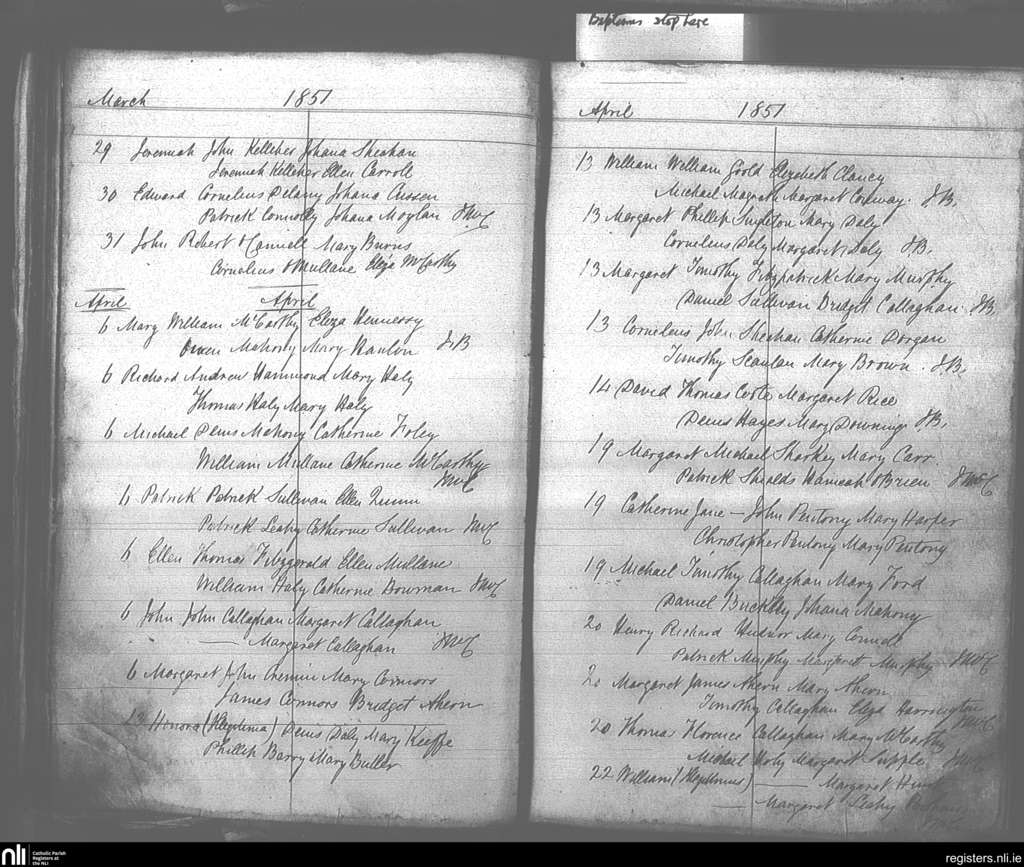 Baptisms stop here
March 1851
29 Jeremiah John Kelleher Johana Sheehan
Jeremiah Kelleher Ellen Carroll
30 Edward Cornelius Delany Johana Cussen
Patrick Connolly Johana Moylan JMcC
31 John Robert O'Connell Mary Burns
Cornelius O'Mullane Eliza McCarthy
April April
6 Mary William McCarthy Eliza Hennessy
Owen Mahony Mary Hanlon J.B
6 Richard Andrew Hammond Mary Haly
Thomas Haly Mary Haly
6 Michael Denis Mahony Catherine Foley
William Mullane Catherine McCarthy
JMcC
Patrick Patrick Sullivan Ellen Quinn
Patrick Leahy Catherine Sullivan JMcC
6 Ellen Thomas Fitzgerald Ellen Mullane
William Haly Catherine Bowman JMcC
6 John John Callaghan Margaret Callaghan
— Margaret Callaghan JMcC
6 Margaret John Cremin Mary Connors
James Connors Bridget Ahern
13 Honora (Illegitima) Denis Daly Mary Keeffe
Phillip Barry Mary Buller
April 1851
13 William William Goold Elizabeth Clancy
Michael Magrath Margaret Conway. J.B.
13 Margaret Phillip Singleton Mary Daly
Cornelius Daly Margaret Daly J.B.
13 Margaret Timothy Fitzpatrick Mary Murphy
Daniel Sullivan Bridget Callaghan. J.B.
13 Cornelius John Sheehan Catherine Dorgan
Timothy Scanlan Mary Brown. J.B.
14 David Thomas Margaret Rice
Denis Hayes Mary Downing J.B.
19 Margaret Michael Sharkey Mary Carr.
Patrick Shields Hannah O'Brien JMcC
19 Catherine Jane — John Pentony Mary Harper
Christopher Pentony Mary Pentony
19 Michael Timothy Callaghan Mary Ford
Daniel Buckley Johana Mahony
20 Henry Richard Mary Connell
Patrick Murphy Margaret Murphy JMcC
20 Margaret James Ahern Mary Ahern
Timothy Callaghan Eliza Harrington
JMcC
20 Thomas Florence Callaghan Mary McCarthy
Michael Margaret Supple JMcC
22 William (Illegitimus) — Margaret
— Margaret Leahy
nli Catholic Parish Registers at the NLI
registers.nli.ie